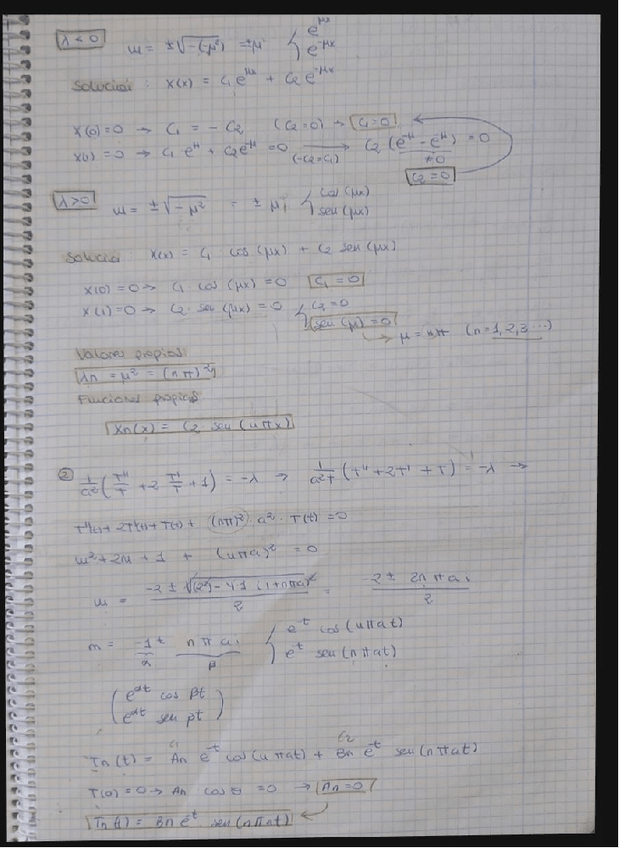 λ < 0
m = ±√-(-μ²) = ±μ { e^μx
e^-μx
Solución: X(x) = C₁ e^μx + C₂ e^-μx
X(0)=0 → C₁ = - C₂ (C₂=0) → C₁=0
X(1)=0 → C₁ e^μ + C₂ e^-μ = 0 → (-C₂=C₁) C₂ (e^-μ - e^μ) = 0
≠0
C₂=0
λ>0
m = ±√-μ² = ± μi { cos(μx)
sen(μx)
Solución X(x) = C₁ cos(μx) + C₂ sen(μx)
X(0)=0 → C₁ cos(μx) = 0 C₁ = 0
X(1)=0 → C₂ · sen(μx) = 0 { C₂=0
sen(μ) = 0
→ μ = nπ (n=1,2,3...)
Valores propios
λn = μ² = (nπ)²
Funciones propias
Xn(x) = C₂ · sen(nπx)
② 1/a² (T''/T + 2 T'/T + 1) = -λ → 1/a²T (T'' + 2T' + T) = -λ →
T''(t) + 2T'(t) + T(t) + (nπ)² a² · T(t) = 0
m² + 2m + 1 + (nπa)² = 0
m = -2 ± √(2²) - 4·1·(1+nπa)² / 2 = -2 ± 2nπai / 2
m = -1 ± nπai { e^-t cos(nπat)
α β e^-t sen(nπat)
( e^αt cos βt
e^αt sen βt )
C₁ C₂
Tn(t) = An e^-t cos(nπat) + Bn e^-t sen(nπat)
T(0)=0 → An cos 0 = 0 → An=0
Tn(t) = Bn e^-t sen(nπat)